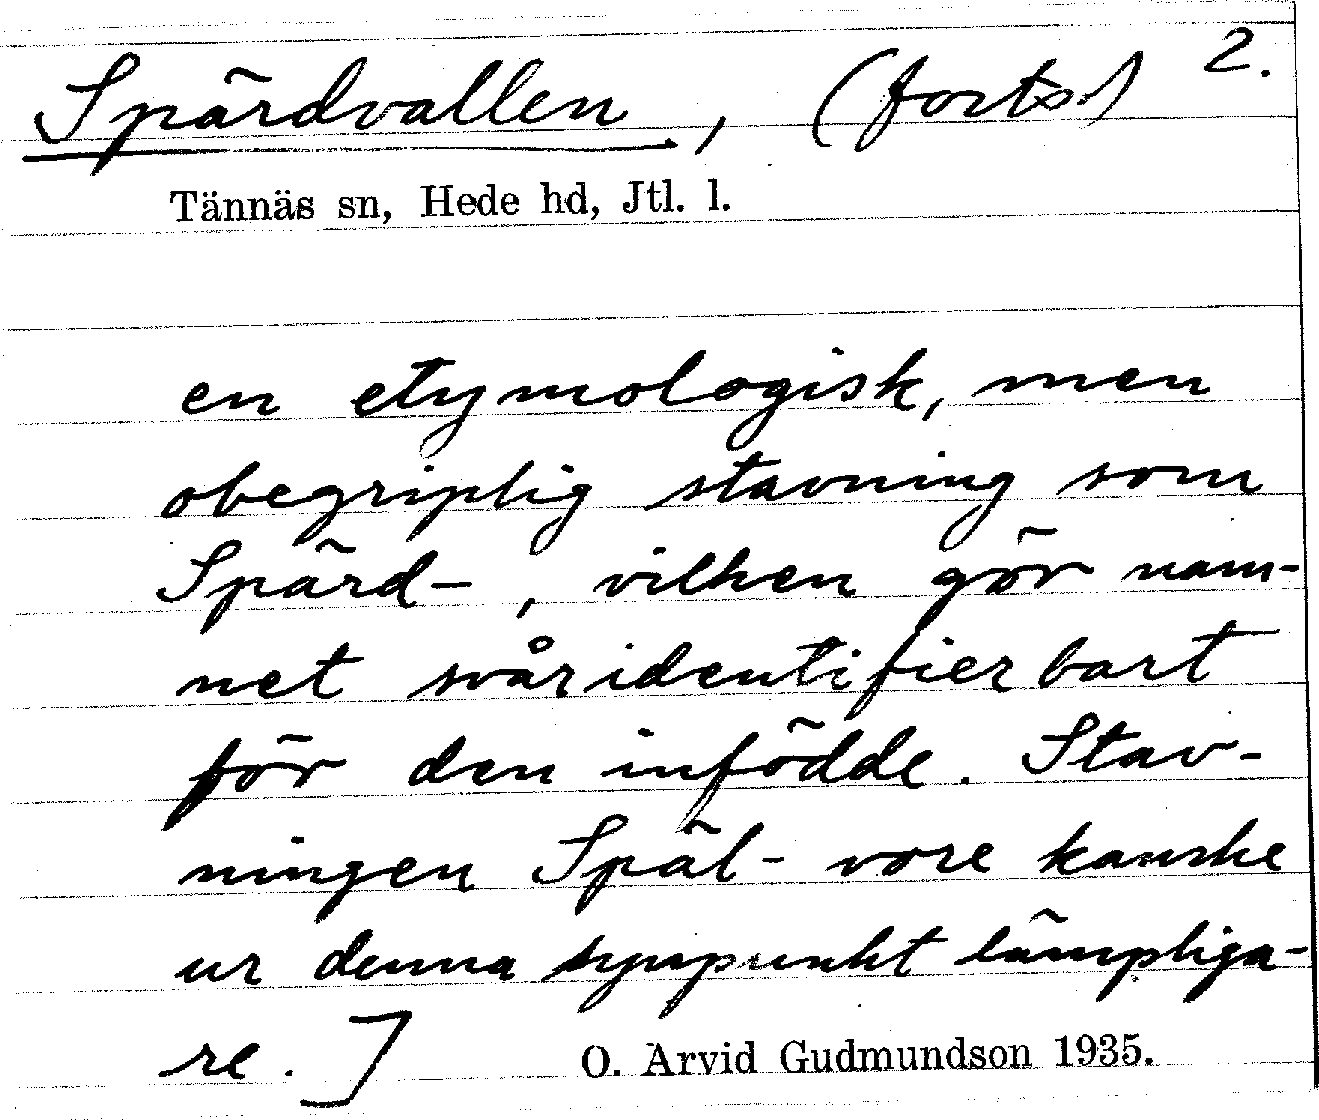 2.
Spärdvallen, (forts.)
Tännäs sn, Hede hd, Jtl. l.
en etymologisk, men
obegriplig stavning som
Spärd-, vilken gör nam-
net svåridentifierbart
för den infödde. Stav-
ningen Späl- vore kanske
ur denna synpunkt lämpliga-
re.]
O. Arvid Gudmundson 1935.